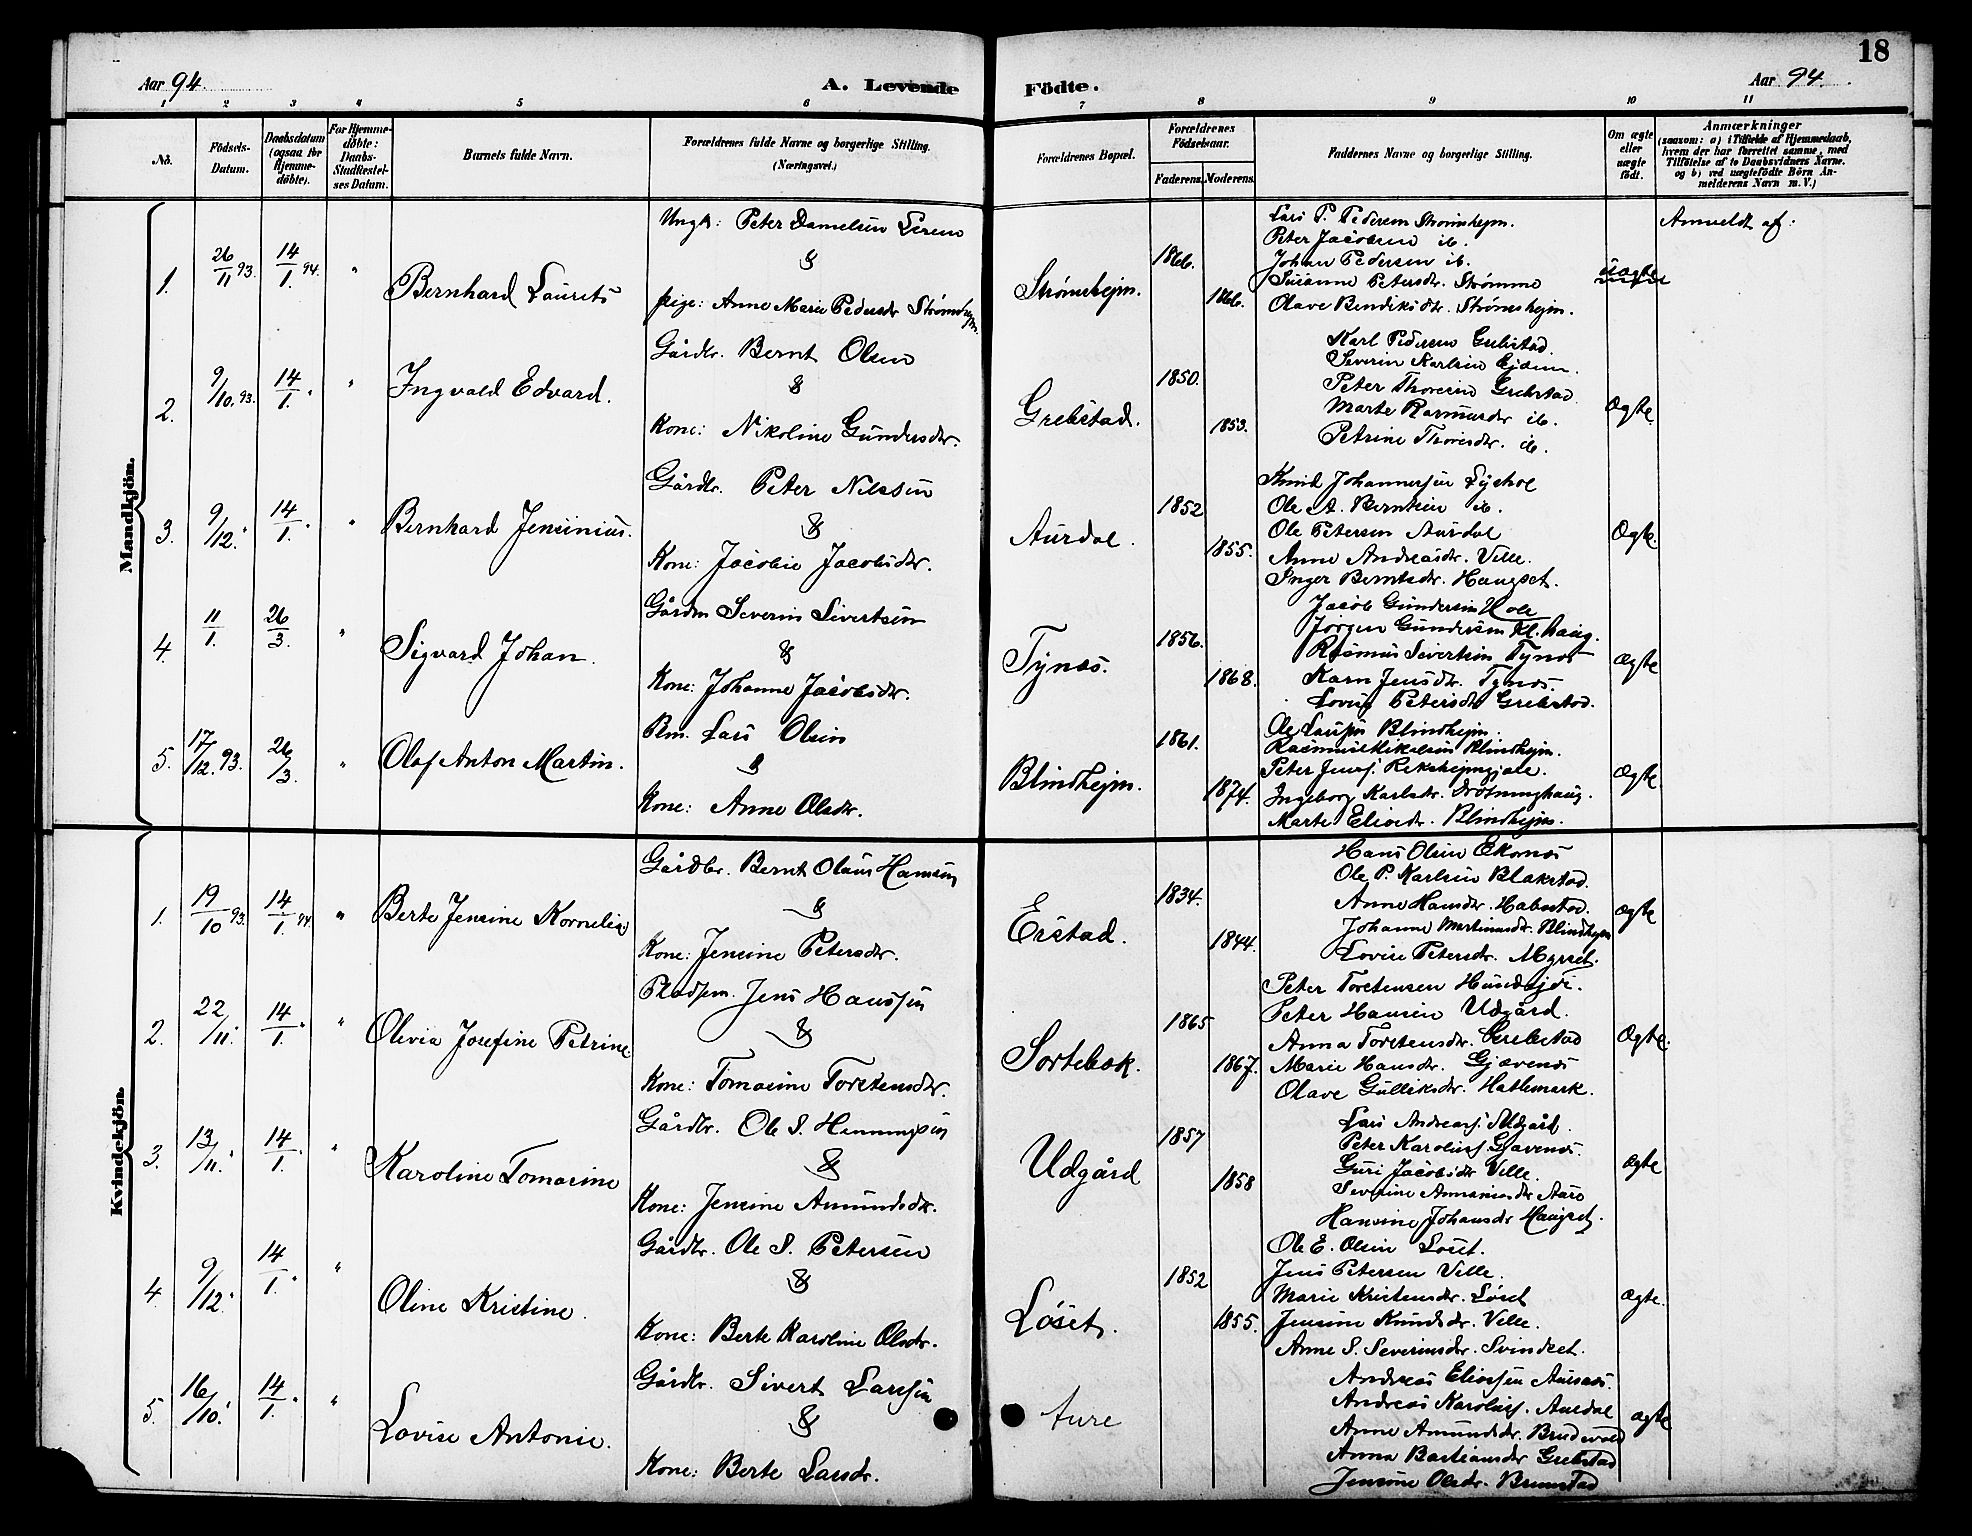 18
Aar 94.
A. Levende Födte.
Aar 94.
1 2 3 4 5 6 7 8 9 10 11
No.
Födsels-Datum.
Daabsdatum (ogsaa for Hjemmedöbte).
For Hjemmedöbte: Daabs-Stadfæstelses Datum.
Barnets fulde Navn.
Forældrenes fulde Navne og borgerlige Stilling. (Næringsvei.)
Forældrenes Bopæl.
Forældrenes Födselsaar.
Faderens. Moderens.
Faddernes Navne og borgerlige Stilling.
Om ægte eller uægte födt.
Anmærkninger
(saasom: a) i Tilfælde af Hjemmedaab, hvem der har forrettet samme, med Tilföielse af to Daabsvidners Navne. og b) ved uægtefödte Börn Anmelderens Navn m. V.)
Mandkjön.
1. 26/11 93. 14/1. 94. " Bernhard Laurits
Ungk: Peter Danielsen Lerem
&
pige: Anne Marie Pedersdr Strømshejm.
Strømshejm. 1866. 1866.
Lars P. Pedersen Strømshejm.
Peter Jacobsen ib.
Johan Pedersen ib.
Susanne Petersdr. Strømme
Olave Bendiksdtr. Strømshejm.
uægte
Anmeldt af:
2. 9/10. 93. 14/1. " Ingvald Edvard.
Gårdbr. Bernt Olsen
&
Kone: Nikoline Gundersdr.
Grebstad. 1850. 1853.
Karl Pedersen Grebstad.
Severin Karlsen
Peter Thoresen Grebstad
Marte Rasmusdr ib.
Petrine Thoresdr. ib.
Ægte
3. 9/12. 14/1. " Bernhard Jensinius.
Gårdbr. Peter Nilssen
&
Kone: Jacobie Jacobsdr.
Aurdal. 1852 1855.
Knud Johannessen
Ole A. Berntsen ib.
Ole Petersen Aurdal
Anne Andreasdr. Velle.
Inger Berntsdr. Haugset.
Ægte.
4. 11/1. 26/3. " Sigvard Johan.
Gårdm Severin Sivertsen
&
Kone: Johanne Jacobsdr.
Tynæs. 1856. 1868.
Jacob Gundersen Hole
Jørgen Gundersen Kl. haug.
Rasmus Sivertsen Tynæs
Karn Jensdr. Tynæs.
Lovise Petersdr Grebstad.
Ægte
5. 17/12. 93. 26/3. " Olaf Anton Martin.
Bm. Lars Olsen
&
Kone: Anne Olsdr.
Blindhejm. 1861. 1874.
Ole Larsen Blindhejm.
Rasmus Mikalsen Blindhejm.
Peter Jensf.
Ingeborg Karlsdr. Drotninghaug.
Marte Eliasdr. Blindhejm.
Ægte
Kvindekjön.
1. 19/10 93. 14/1. 94. " Berte Jensine Kornelia
Gårdbr. Bernt Olaus Hansen
&
Kone: Jensine Petersdr.
Erstad. 1834. 1844.
Hans Olsen Ekornæs
Ole P. Karlsen Blakstad.
Anne Hansdr. Habostad.
Johanne Martinusdr. Blindhejm
Lovise Petersdr. Myrset.
Ægte
2. 22/11. 14/1. " Olivia Josefine Petrine
Pladsm. Jens Hanssen
&
Kone: Tomasine Torstensdr.
Sortebæk. 1865 1867.
Peter Torstensen
Peter Hansen Udgård.
Anna Torstensdr. Grebstad
Marie Hansdr. Gjævenæs
Olave Gulliksdr. Hathmark.
Ægte.
3. 13/11. 14/1. " Karoline Tomasine
Gårdbr. Ole S. Henningsen
&
Kone: Jensine Amundsdr.
Udgård 1857 1858
Lars Andreasf. Udgård.
Peter Karolusf Gjævenæs.
Guri Jacobsdr Velle.
Severine Annaniasdr Aure
Hansine Johansdr Haugset.
Ægte
4. 9/12. 14/1. " Oline Kristine.
Gårdbr. Ole S. Petersen
&
Kone: Berte Karoline Olsdr.
Løset. 1852 1855.
Ole E. Olsen Løset.
Jens Petersen Velle.
Marie Kristensdr. Løset
Jensine Knudsdr. Velle.
Anne S. Severinsdr. Svindset.
Ægte.
5. 16/10. 14/1. " Lovise Antonie.
Gårdbr. Sivert Larssen
&
Kone: Berte Larsdr.
Aure
Andreas Eliassen Aursnæs.
Andreas Karolusf. Aurdal
Anne Amundsdr. Brudevold
Anna Bastiansdr Grebstad
Jensine Olsdr. Brunstad
Ægte